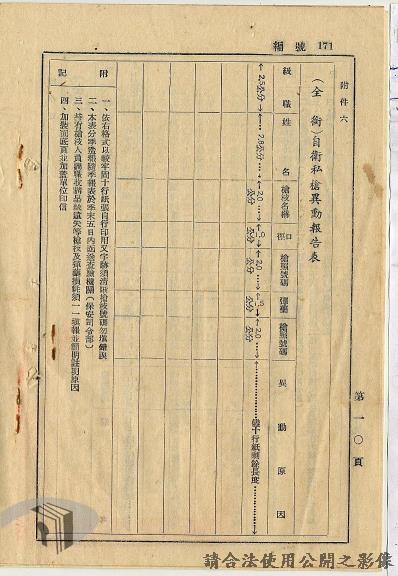 編號 171
附件六
（全銜）自衛私槍異動報告表
級職
姓名
槍枝名稱
口徑
槍照號碼
彈藥
槍照號碼
異動原因
2.5公分
2.8公分
2.0公分
1.0公分
2.0公分
1.5公分
2.0公分
依十行紙剩餘長度
附記
一、依右格式以較牢固十行紙張自行印用文字跡須清晰槍枝號碼勿填錯誤
二、本表分季造報隨季報表於季末五日內送查驗機關（保安司令部）
三、持有槍枝人員調職收購品缺遺失等槍枝及彈藥損耗須一一填報並簡明註明原因
四、加裝面底頁並加蓋單位印信
第一〇頁
請合法使用公開之影像